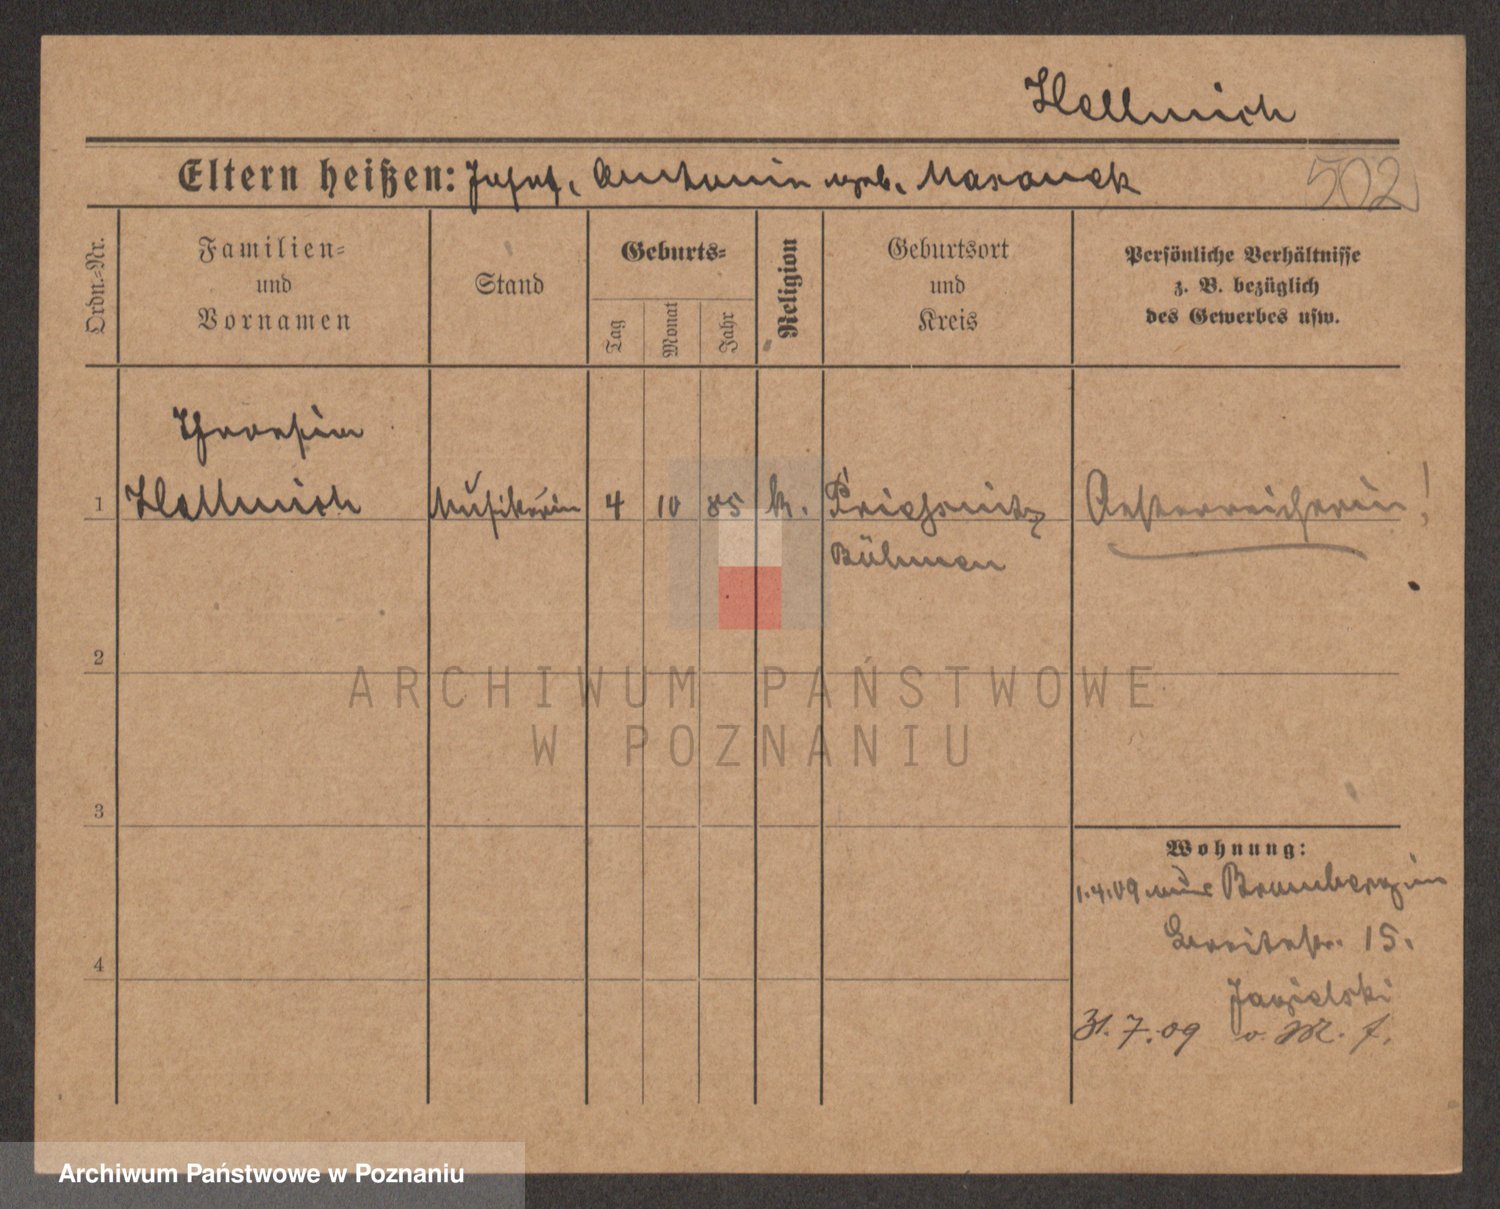 Hellmich
Eltern heißen: Josef, Antonin geb. Maranek
502
Ordn.-Nr.
Familien-
und
Vornamen
Stand
Geburts-
Tag
Monat
Jahr
Religion
Geburtsort
und
Kreis
Persönliche Verhältnisse
z. B. bezüglich
des Gewerbes usw.
1
Hellmich
Musikerin
4
10
85
k.
Priesnitz
Böhmen
Oesterreicherin!
2
ARCHIWUM PAŃSTWOWE
W POZNANIU
3
Wohnung:
1.4.09 aus Bromberg in
Breitestr. 15.
Jagielski
4
31.7.09 v. M. f.
Archiwum Państwowe w Poznaniu